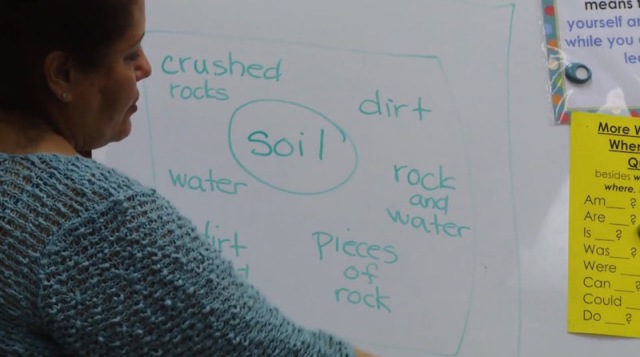 crushed
rocks
dirt
soil
water
rock
and
water
pieces
of
rock
means
yourself
while you
More
besides
where.
Am___?
Are ___?
Is ___?
Was___?
Were
Can
Could
Do ___?